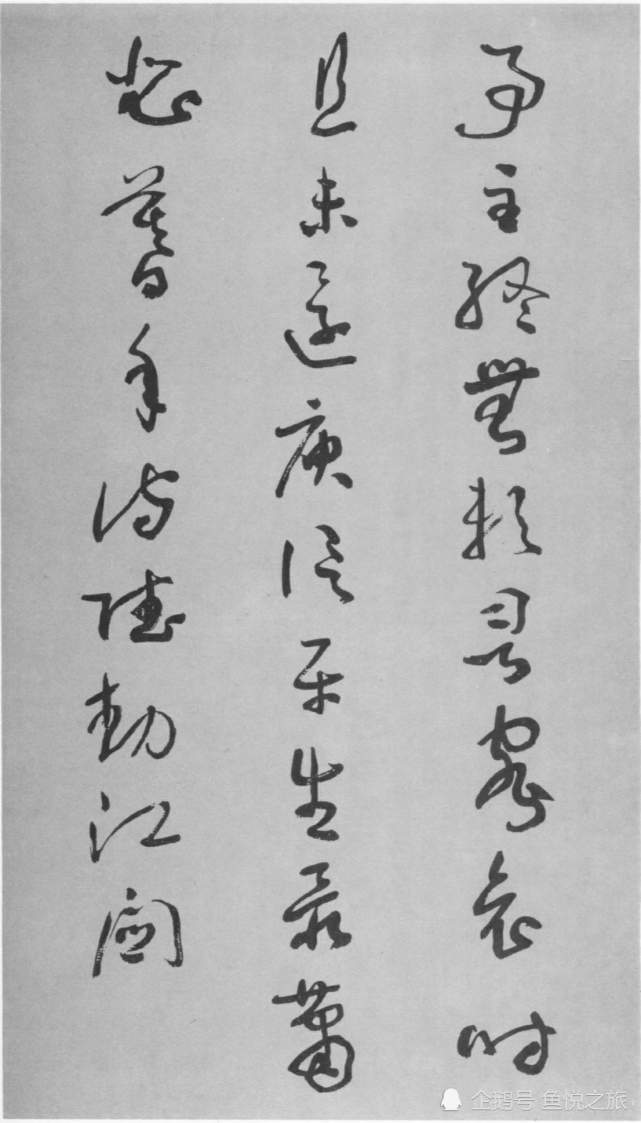 事主终无赖词客哀时
且未还庾信平生最萧
瑟暮年诗赋动江关
企鹅号 鱼悦之旅